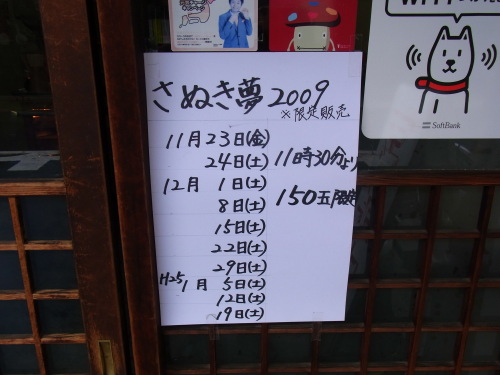 さぬき夢2009
※限定販売
11月23日(金)
24日(土) 11時30分より
12月 1日(土)
8日(土) 150玉限定
15日(土)
22日(土)
29日(土)
H25 1月 5日(土)
12日(土)
19日(土)
SoftBank